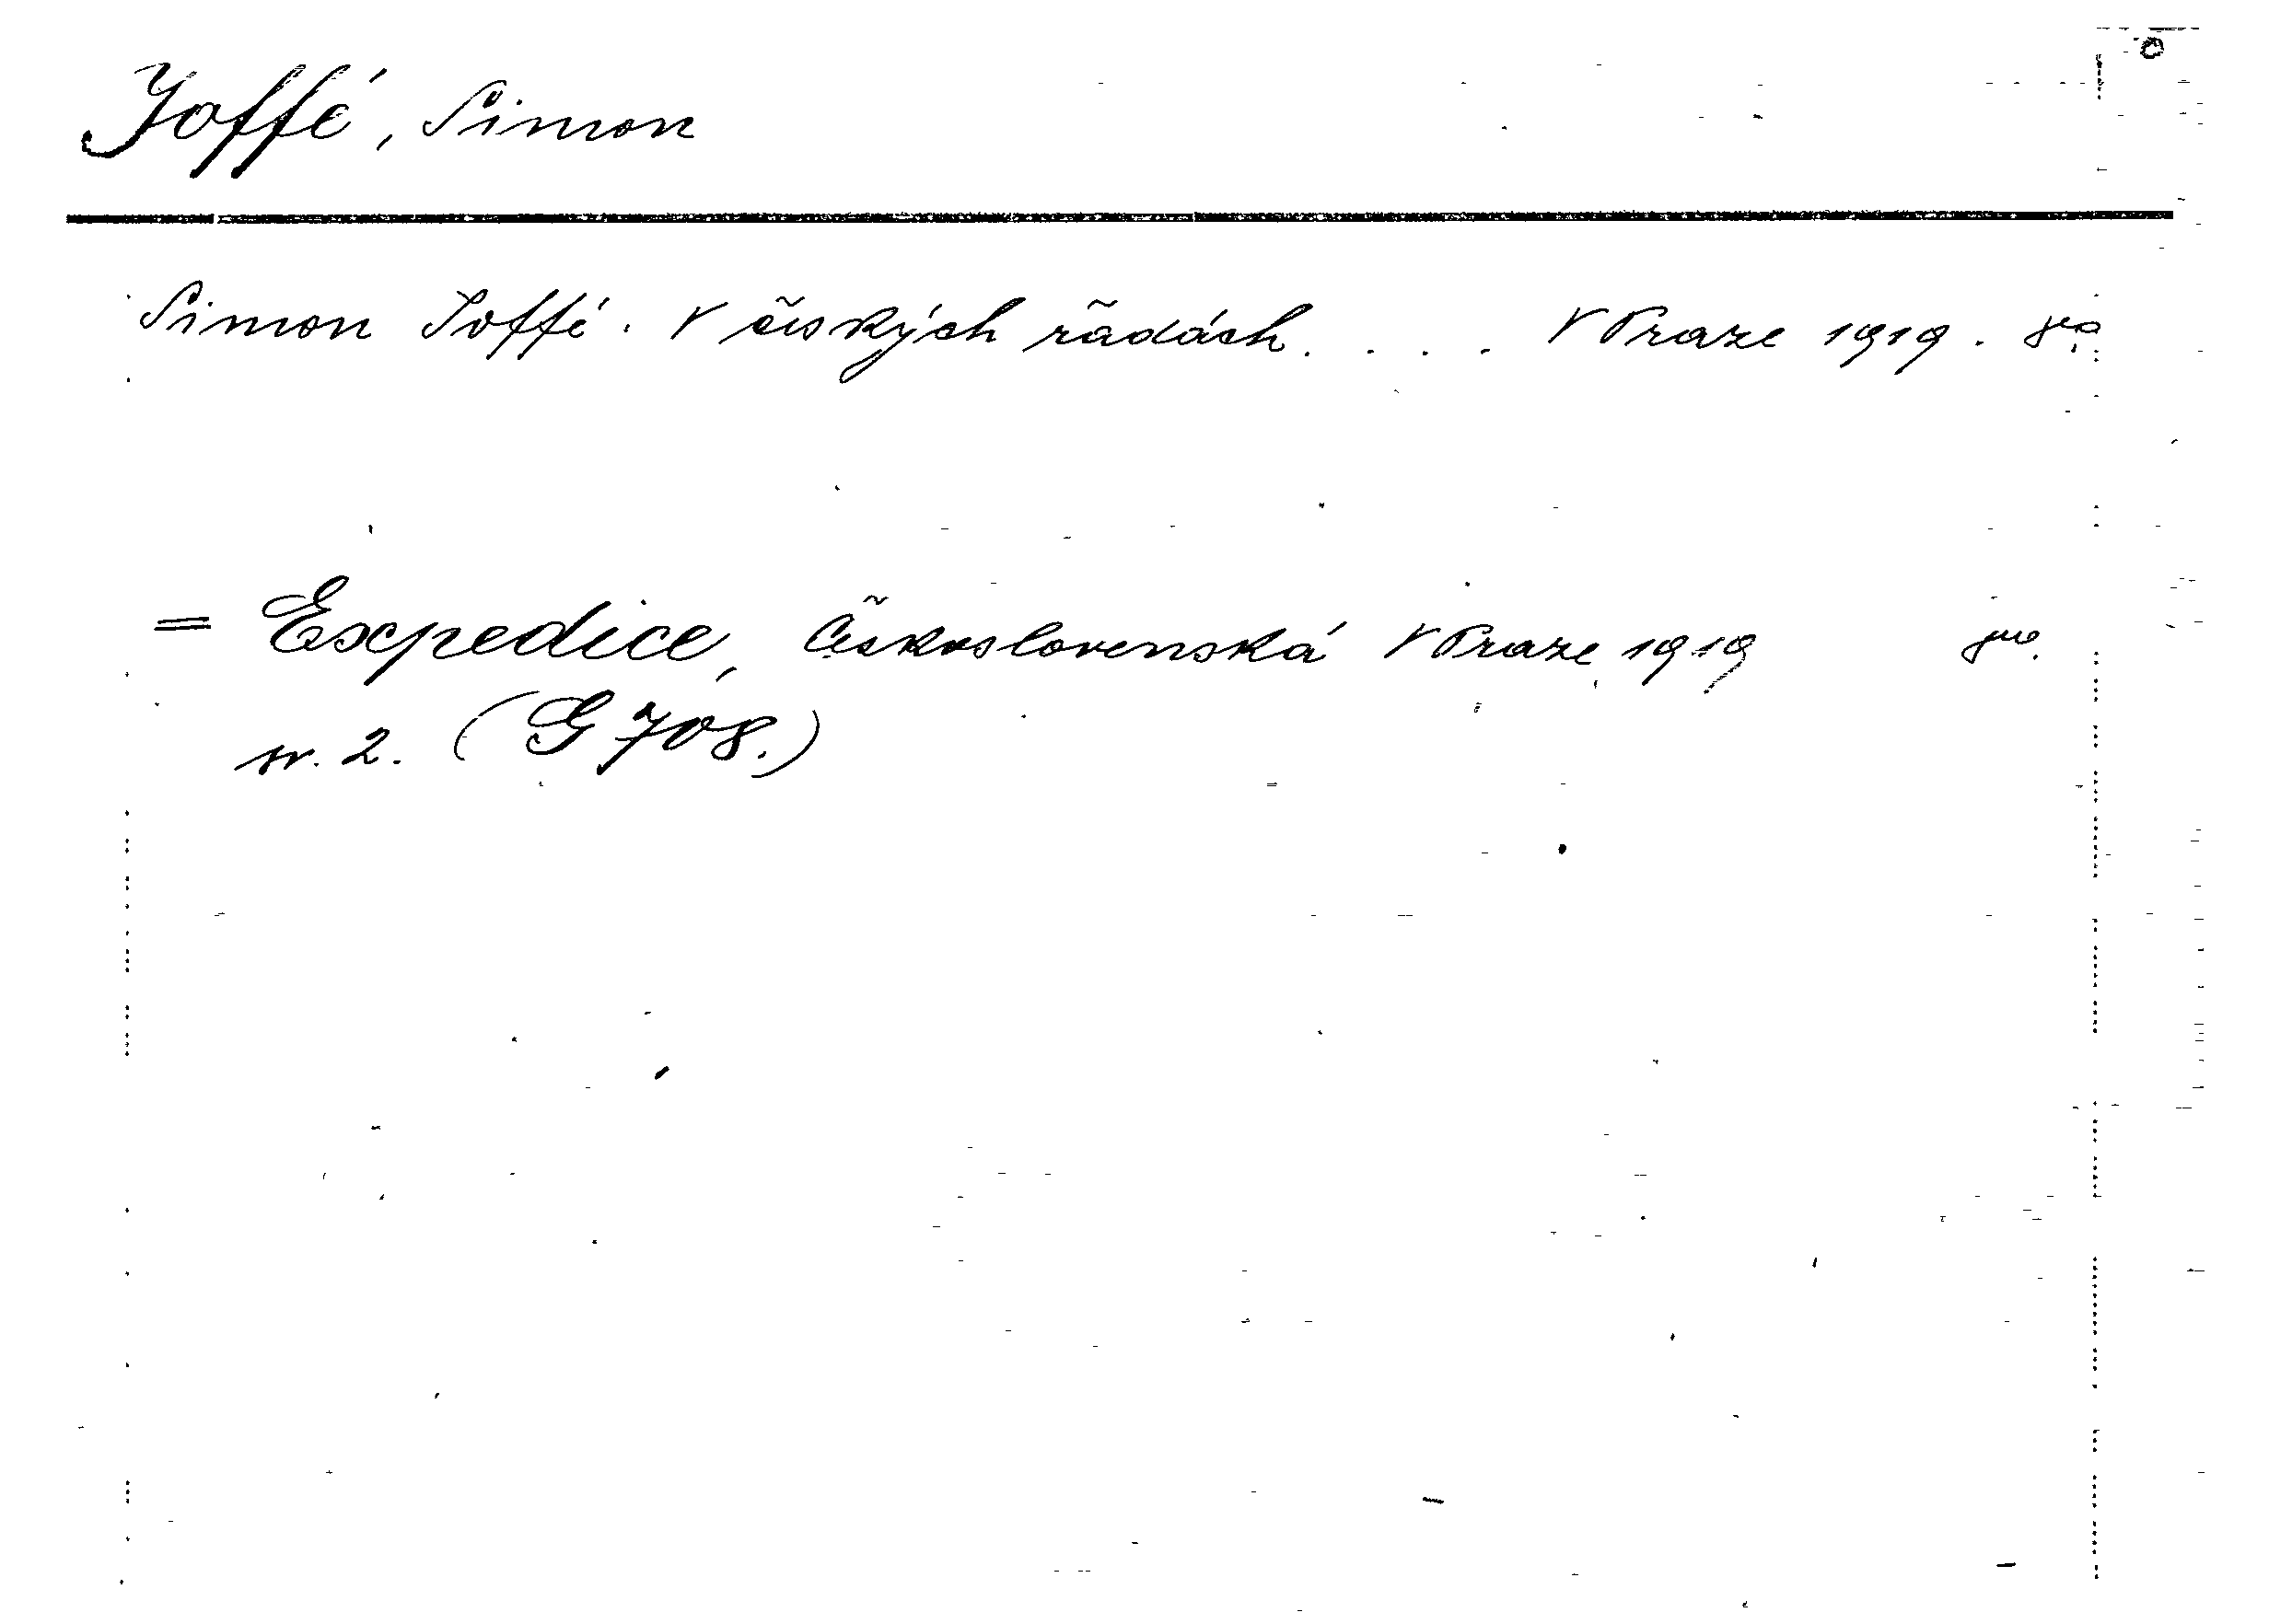 Joffé, Simon
Simon Joffé. V českých řadách. . . . V Praze 1919. 8º.
= Expedice, Československá V Praze 1919 8º.
sv. 2. (G 708.)